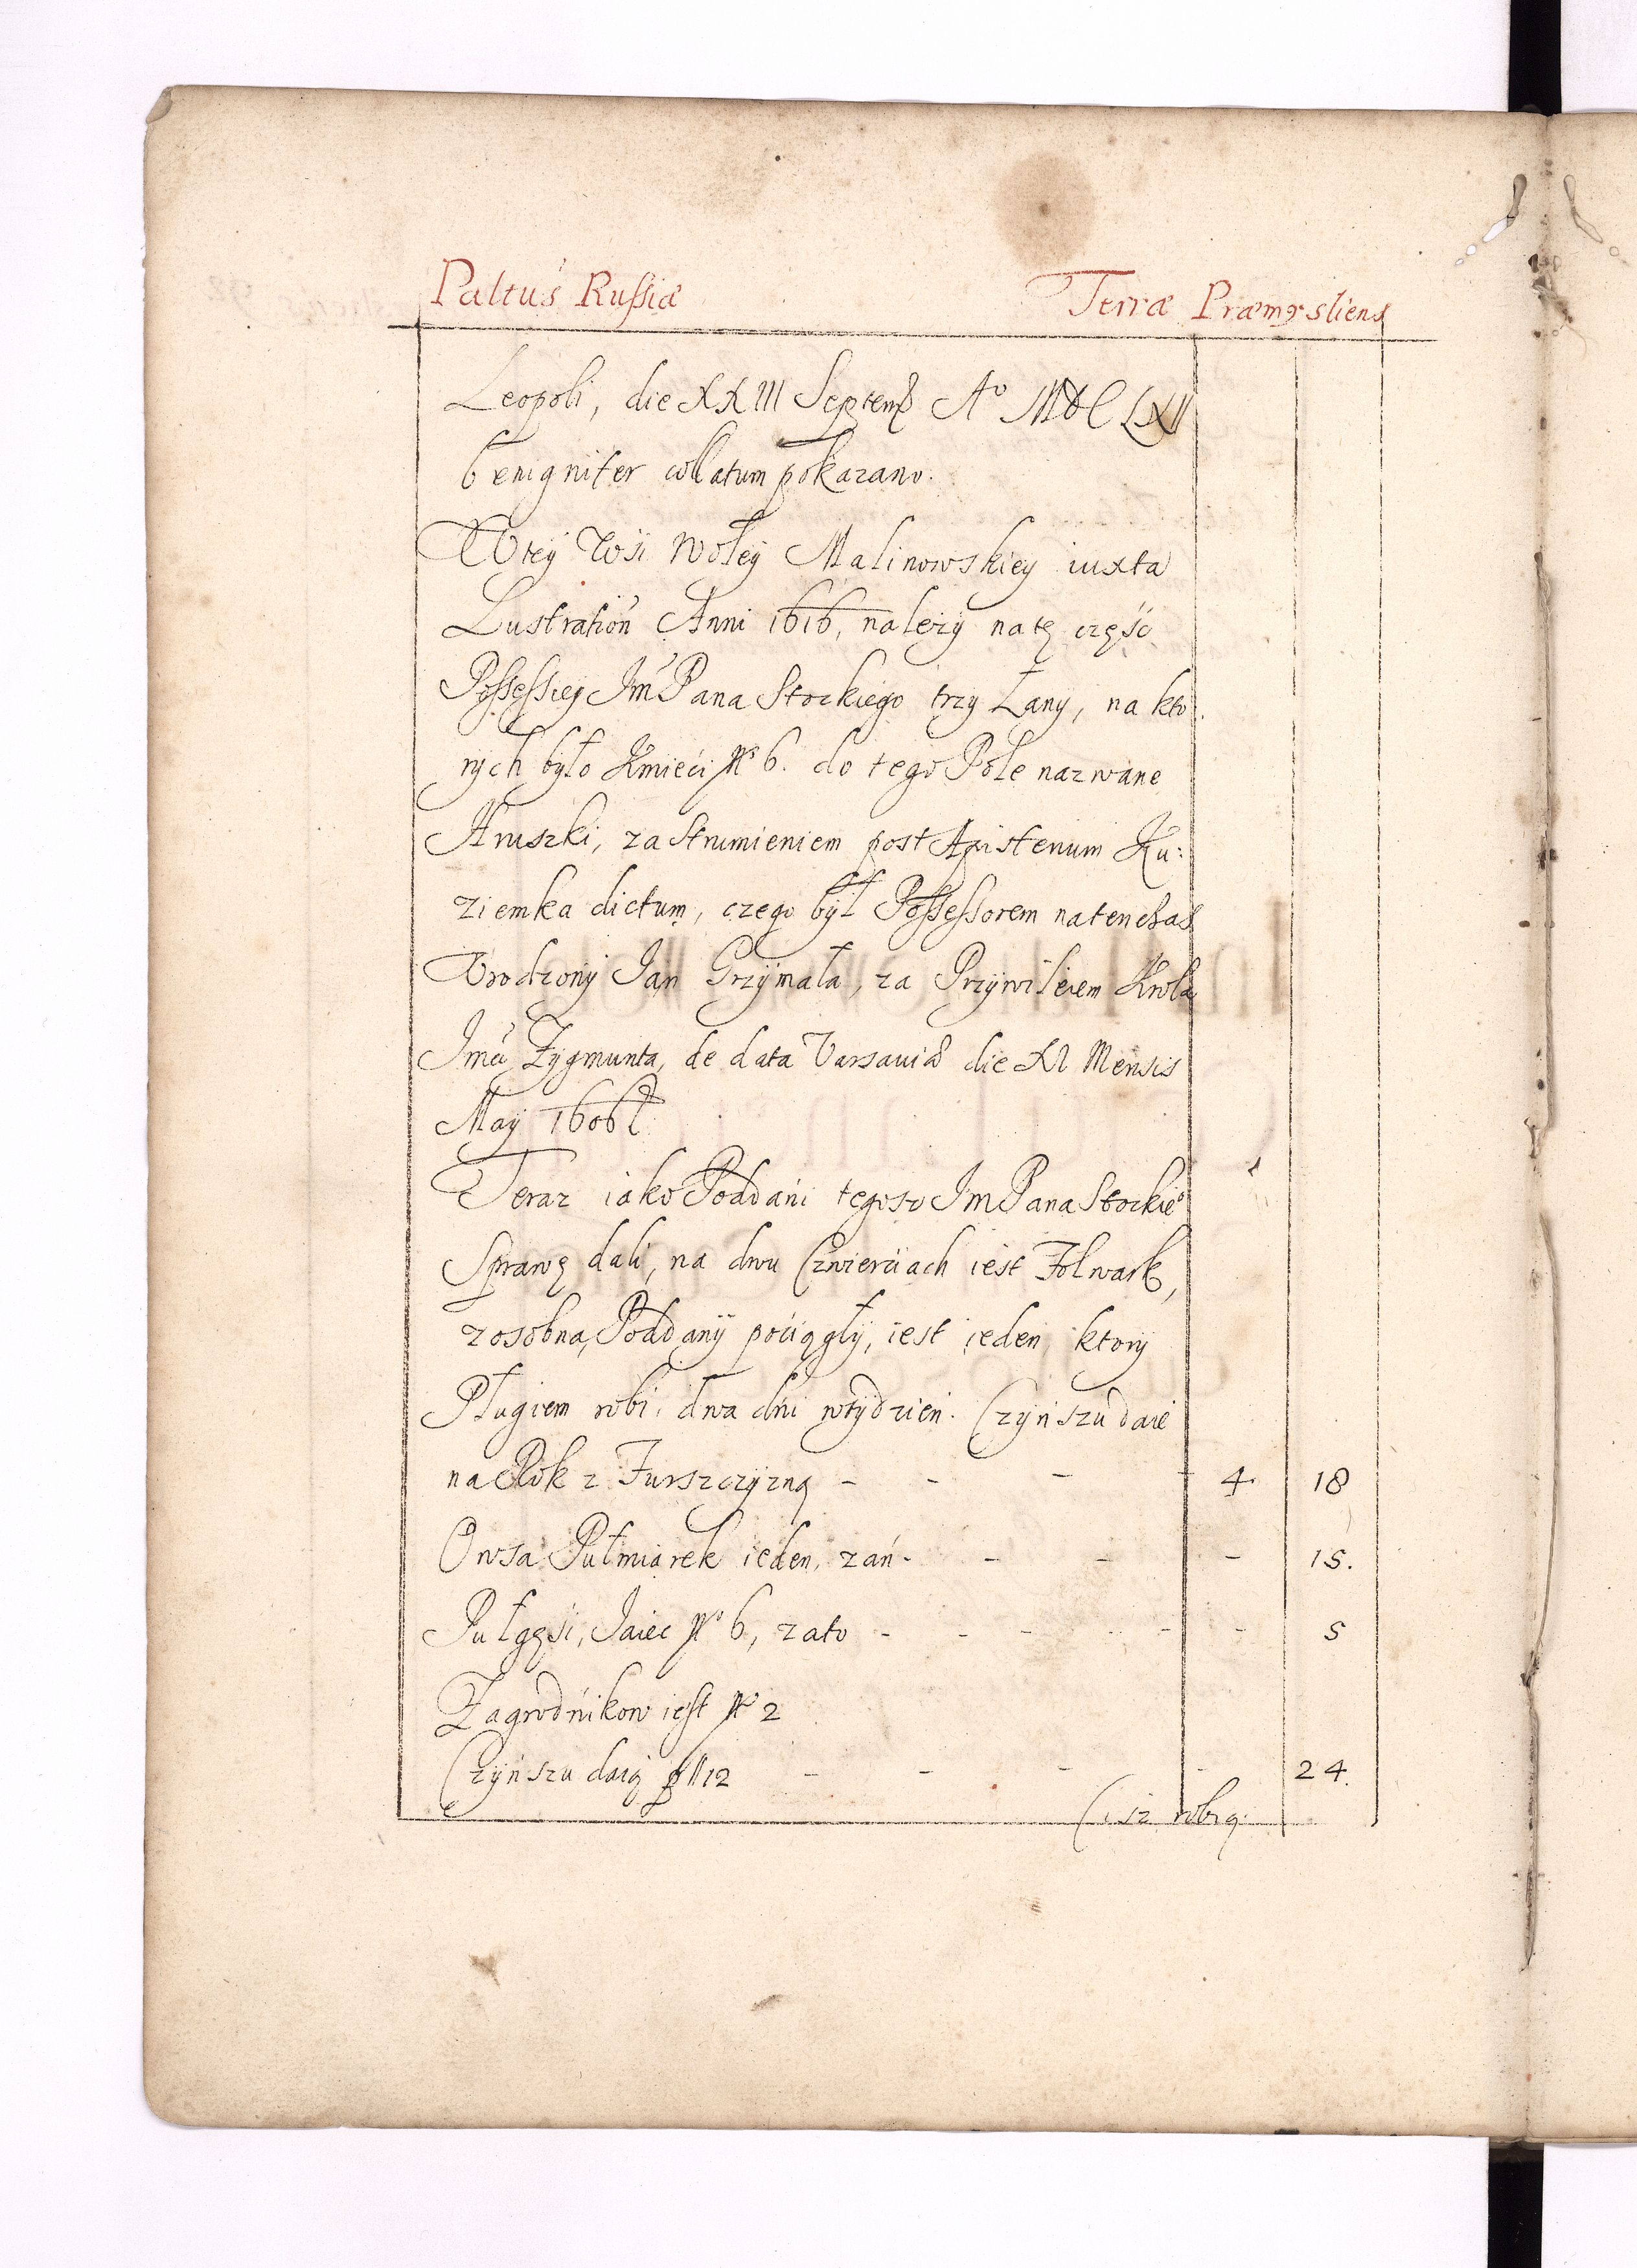 Paltus Russiæ Terræ Præmysliens
Leopoli, die XXIII Septemb A° MDCLXII
benigniter collatum pokazano.
Wtey Wsi Woley Malinowskiey iuxta
Lustration Anni 1616, należy natę część
Possessiey Im Pana Stockiego trzy Łany, na kto
rych było Kmieci N° 6. do tego Pole nazwane
Hruszki, za Strumieniem post Apisterium Ku:
ziemka dictum, czego był Possessorem natenczas
Urodzony Jan Grzymała, za Przywileiem Krola
Imci Zygmunta, de data Varsaviæ die XI Mensis
May 1606
Teraz iako Poddani tegosz Im Pana Stockie°
Sprawę dali, na dwu Czwierciach iest Folwark,
zosobna, Poddany pociągły, iest ieden ktory
Pługiem robi dwa dni wtydzień. Czynszu daie
na Rok z Furszczyzną - - - - 4. 18
Owsa Pułmiarek ieden, zań - - - - 15.
Pułgęsi, Jaiec N° 6, zato - - - - - - 5
Zagrodnikow iest N° 2
Czynszu daią p 12 - - - - 24.
Cisz robią